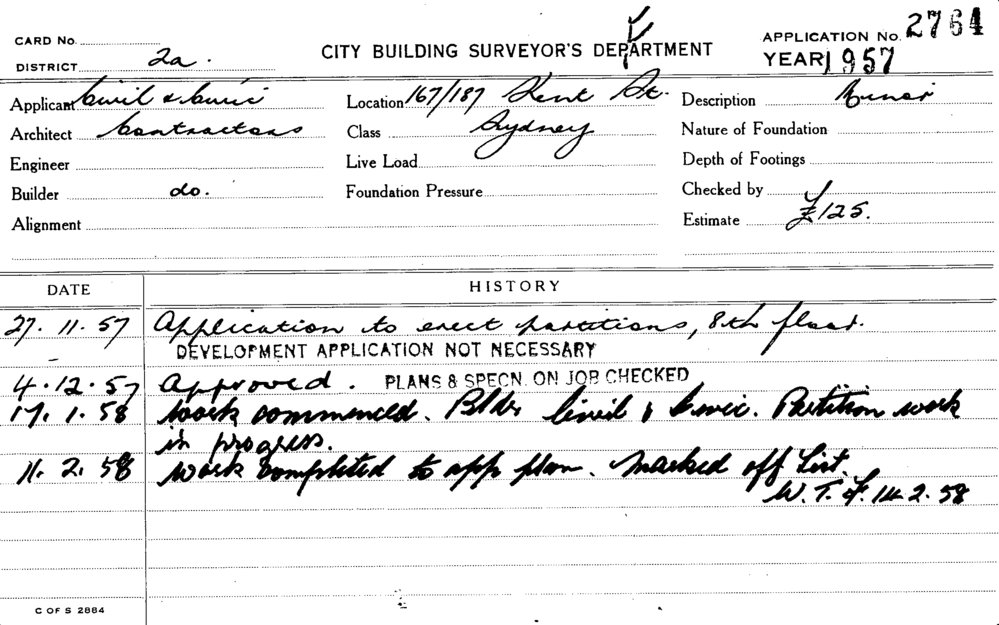 CARD No.
DISTRICT 2a.
CITY BUILDING SURVEYOR'S DEPARTMENT
APPLICATION No. 2764
YEAR 1957
Applicant Civil & Civic
Location 167/187 Kent St.
Description Minor
Architect Contractors
Class Sydney
Nature of Foundation
Engineer
Live Load
Depth of Footings
Builder do.
Foundation Pressure
Checked by
Alignment
Estimate £125.
DATE
HISTORY
27.11.57 Application to erect partitions, 8th floor.
DEVELOPMENT APPLICATION NOT NECESSARY
4.12.57 Approved. PLANS & SPECN. ON JOB CHECKED
17.1.58 Work commenced. Bldr Civil & Civic. Partition work
in progress.
11.2.58 Work completed to app plan. Marked off List.
W.T.F. 14.2.58
C OF S 2884